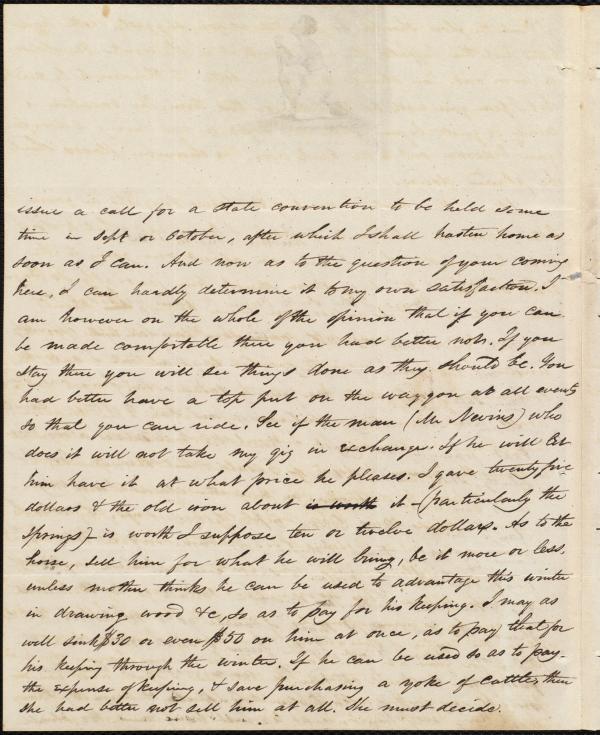 issue a call for a State convention to be held some
time in Sept or October, after which I shall hasten home as
soon as I can. And now as to the question of your coming
here, I can hardly determine it to my own satisfaction. I
am however on the whole of the opinion that if you can
be made comfortable there you had better not. If you
stay there you will see things done as they should be. You
had better have a top put on the waggon at all events
so that you can ride. See if the man (Mr Nevins) who
does it will not take my gig in exchange. If he will let
him have it at what price he pleases. I gave twenty five
dollars & the old iron about is worth it – (particularly the
Springs) – is worth I suppose ten or twelve dollars. As to the
horse, sell him for what he will bring, be it more or less,
unless mother thinks he can be used to advantage this winter
in drawing wood &c, so as to pay for his keeping. I may as
well sink $30 or even $50 on him at once, as to pay that for
his keeping through the winter. If he can be used so as to pay
the expense of keeping, & save purchasing a yoke of cattle, then
she had better not sell him at all. She must decide.